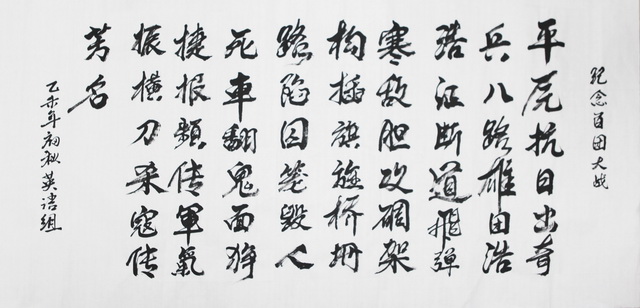 纪念百团大战
平尻抗日出奇
兵八路雄团浩
浩征断道飛弹
寒敌胆攻碉架
构插旗旌桥坍
路陷囚笼毁人
死車翻鬼面狰
捷报頻传軍氣
振横刀杀寇传
芳名
乙未年初秋英语组